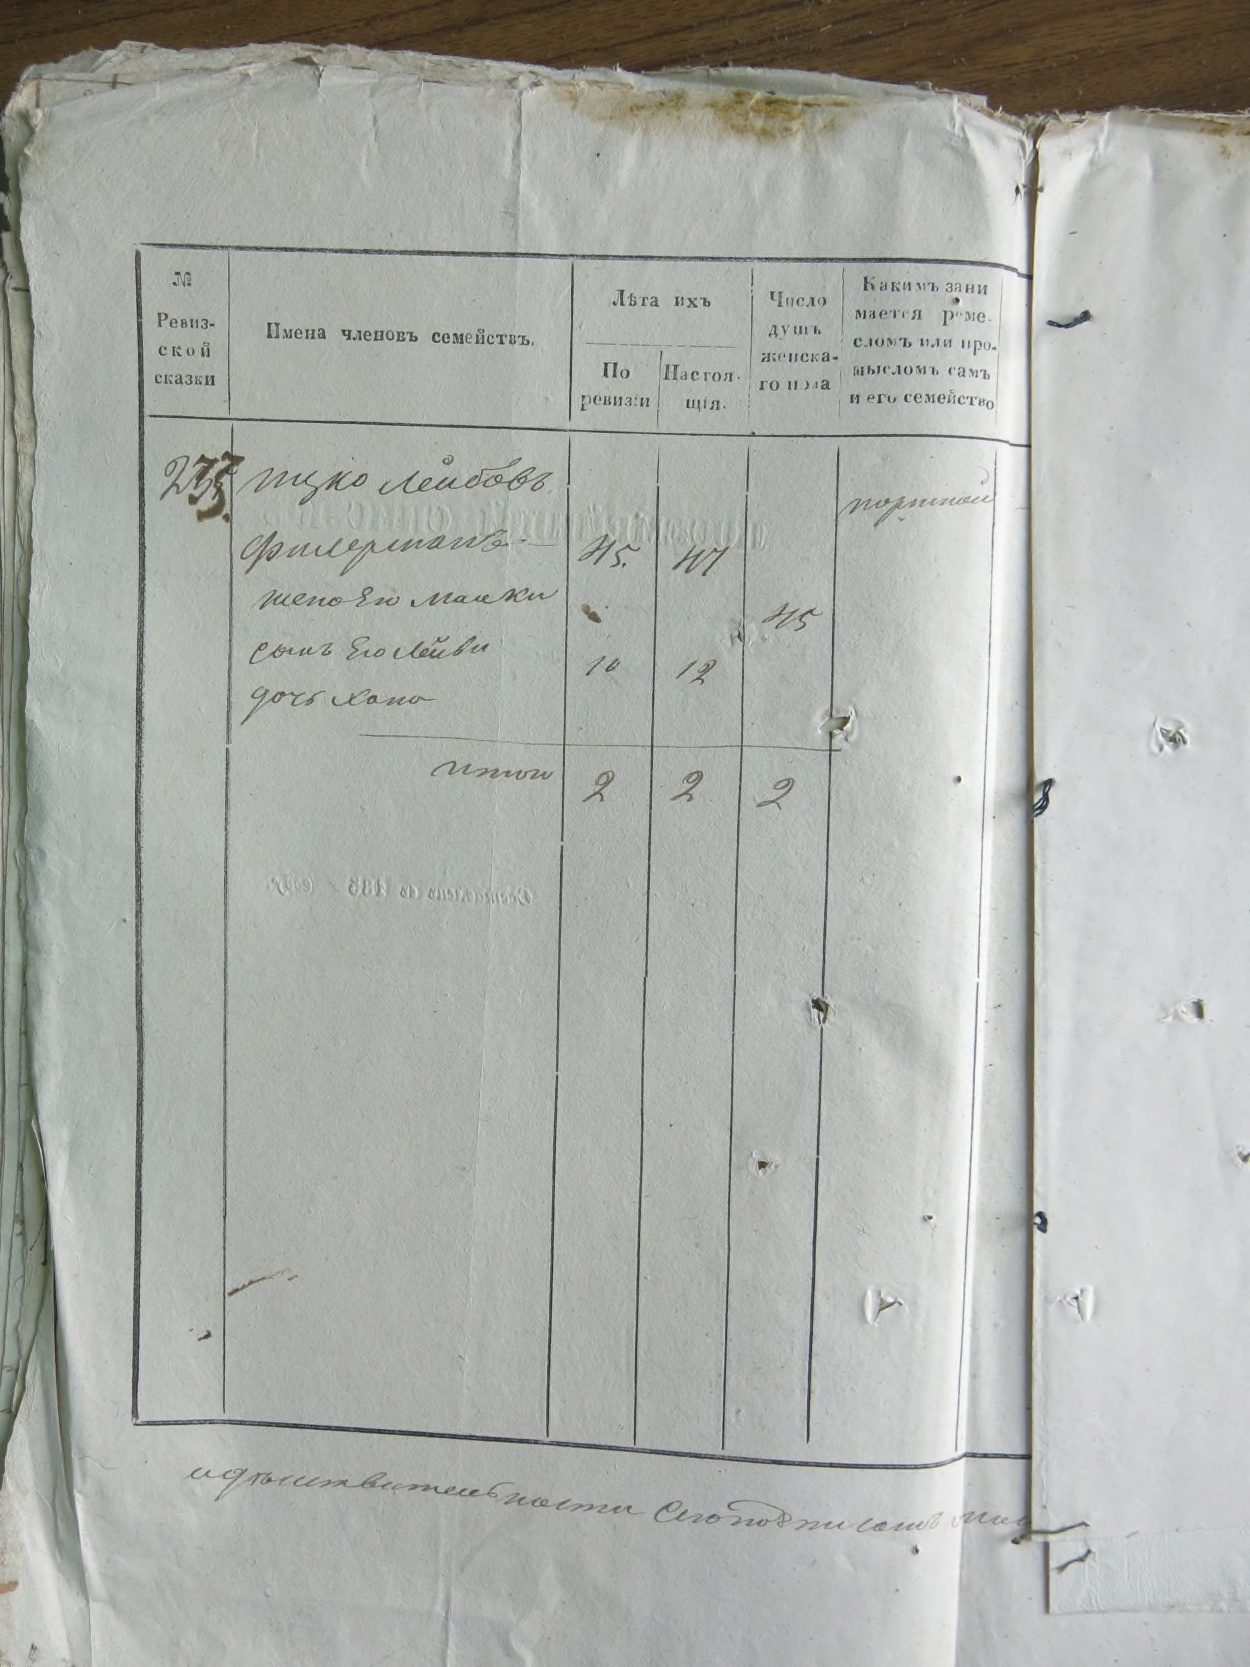 №
Ревиз-
ской
сказки
Имена членовъ семействъ.
Лѣта ихъ
По
ревизіи
Настоя-
щія.
Число
душъ
женска-
го пола
Какимъ зани
мается реме-
сломъ или про-
мысломъ самъ
и его семейство
Ицко Лейбовъ
портной
Фишерманъ 45. 47
жена Его 45
сынъ Его Лейби 10 12
дочь Хана
итои 2 2 2
Сего подписомъ